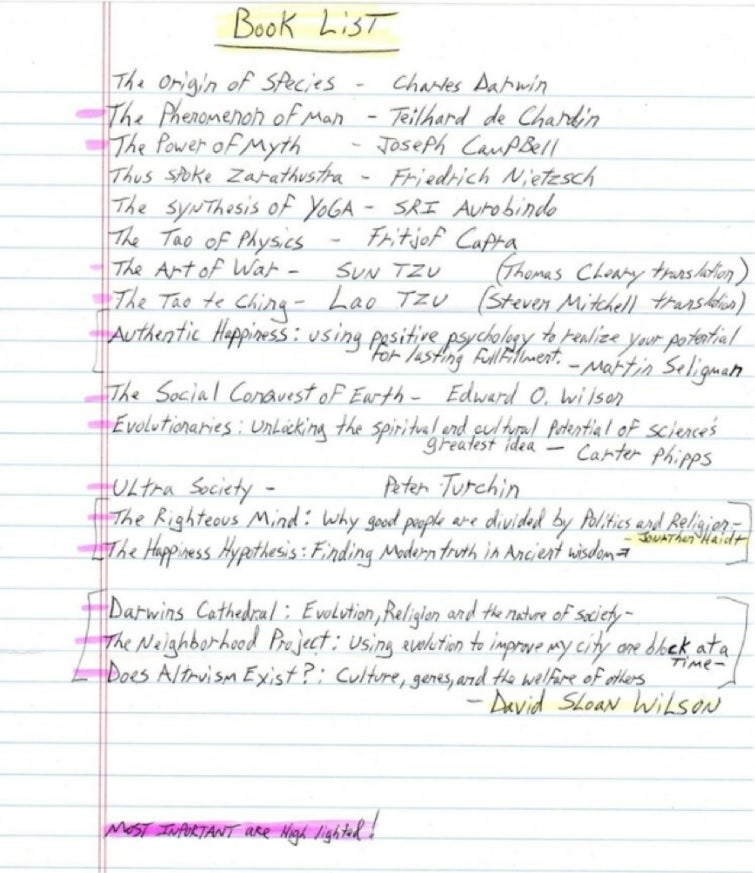 Book List
The Origin of Species - Charles Darwin
The Phenomenon of Man - Teilhard de Chardin
The Power of Myth - Joseph Campbell
Thus spoke Zarathustra - Friedrich Nietzsch
The synthesis of YOGA - SRI Aurobindo
The Tao of Physics - Fritjof Capra
The Art of War - SUN TZU (Thomas Cleary translation)
The Tao te Ching - Lao TZU (Steven Mitchell translation)
Authentic Happiness: using positive psychology to realize your potential
for lasting fulfillment. - Martin Seligman
The Social Conquest of Earth - Edward O. Wilson
Evolutionaries: Unlocking the spiritual and cultural Potential of science's
greatest idea - Carter Phipps
Ultra Society - Peter Turchin
The Righteous Mind: Why good people are divided by Politics and Religion -
- Jonathon Haidt
The Happiness Hypothesis: Finding Modern truth in Ancient wisdom
Darwins Cathedral: Evolution, Religion and the nature of society -
The Neighborhood Project: Using evolution to improve my city one block at a
Time -
Does Altruism Exist?: Culture, genes, and the welfare of others
- David Sloan Wilson
MOST INPORTANT are High lighted!